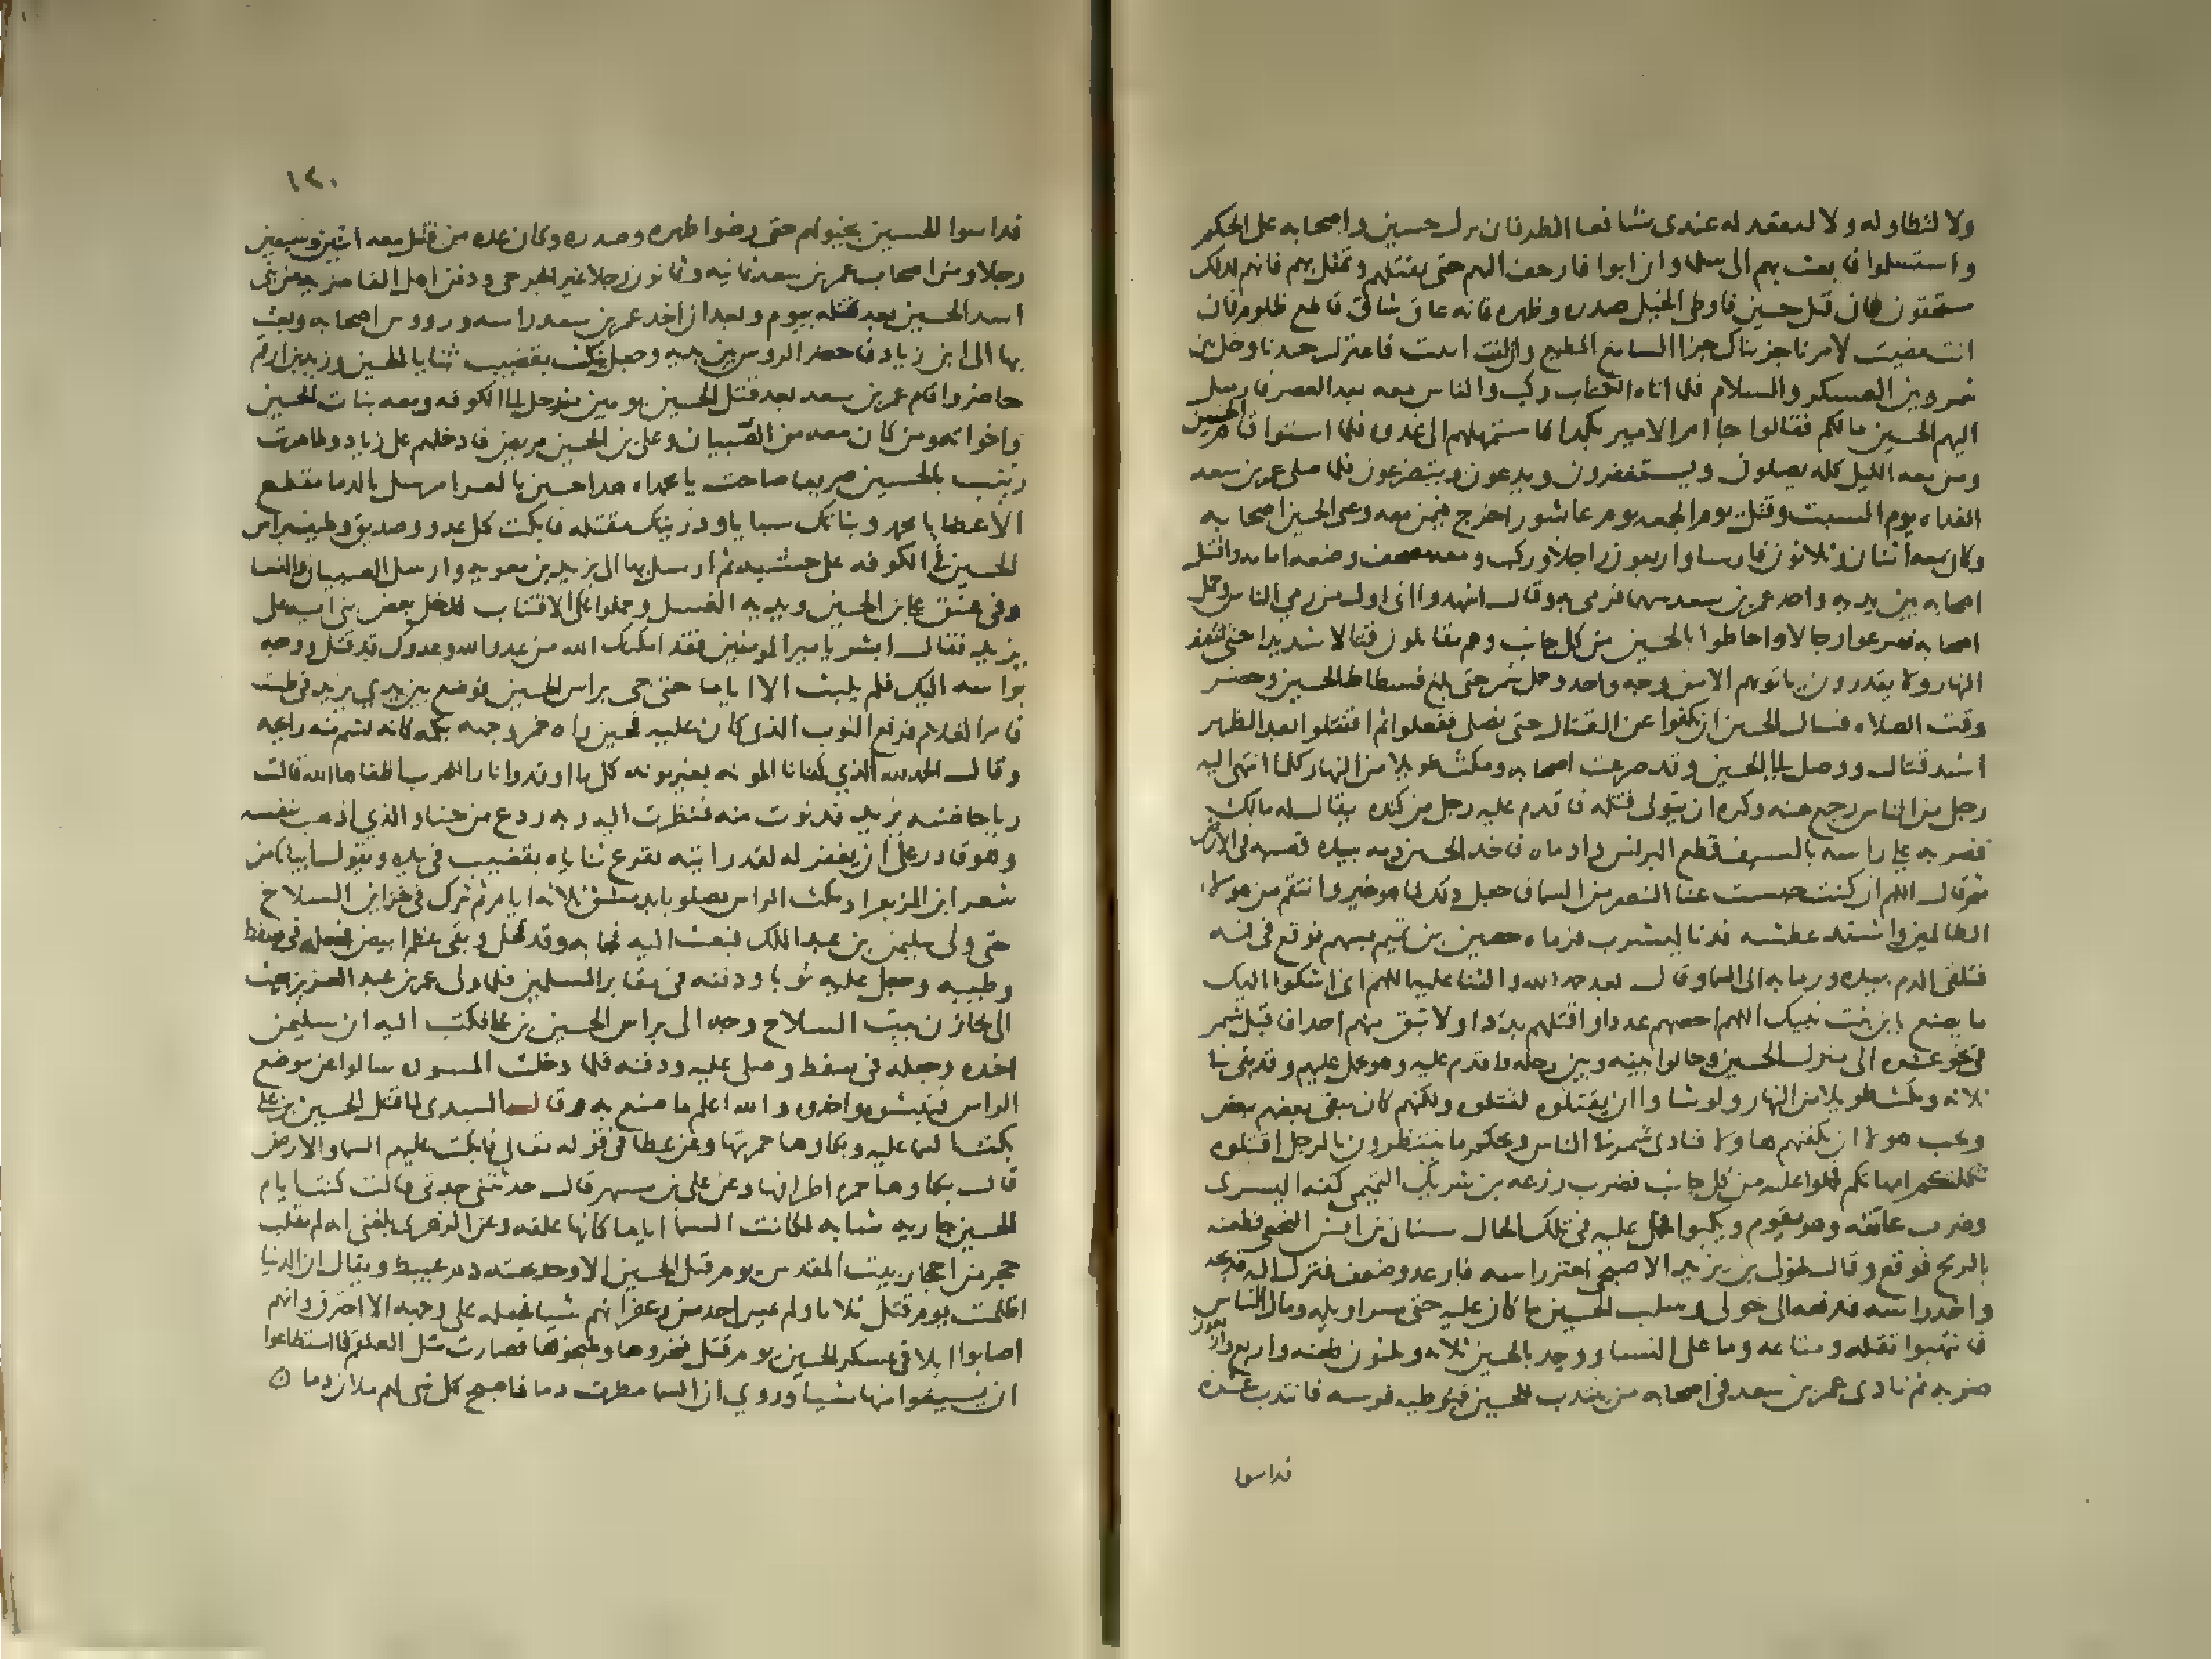 ولا لتطاوله ولا لتقعد له عندي شافعا انظر فان نزل حسين واصحابه على الحكم
واستسلموا فابعث بهم الى سلما وان ابوا فازحف اليهم حتى تقتلهم وتمثل بهم فانهم لذلك
مستحقون فان قتل حسين فاوطي الخيل صدره وظهره فانه عاق شاق قاطع ظلوم فان
انت مضيت لامرنا جزيناك جزا السامع المطيع وان انت ابيت فاعتزل جندنا وخل بين
شمر وبين العسكر والسلام فلما اتاه الكتاب ركب والناس معه بعد العصر فارسل
اليهم الحسين مالكم فقالوا جا امر الامير بكذا فاستمهلهم الى غدوه فلما امسوا قام الحسين
ومن معه الليل كله يصلون ويستغفرون ويدعون ويتضرعون فلما صلى عمر بن سعد
الغداه يوم السبت وقيل يوم الجمعه يوم عاشورا خرج فيمن معه وعبى الحسين اصحابه
وكان معه اثنان وثلاثون فارسا واربعون راجلا وركب ومعه مصحف وضعه امامه واقتتل
اصحابه بين يديه واخذ عمر بن سعد سهما فرمى به وقال اشهدوا اني اول من رمى الناس وحمل
اصحابه فصرعوا رجالا واحاطوا بالحسين من كل جانب وهم يقاتلون قتالا شديدا حتى انتصف
النهار ولا يقدرون ياتونهم الا من وجه واحد وحمل شمر حتى بلغ فسطاط الحسين وحضر
وقت الصلاه فسال الحسين ان يكفوا عن القتال حتى يصلي ففعلوا ثم اقتتلوا بعد الظهر
اشد قتال ووصل الى الحسين وقد صرعت اصحابه ومكث طويلا من النهار كلما انتهى اليه
رجل من الناس رجع عنه وكره ان يتولى قتله فاقدم عليه رجل من كنده يقال له مالك
فضربه على راسه بالسيف قطع البرنس وادماه فاخذ الحسين دمه بيده فصبه في الارض
ثم قال اللهم ان كنت حبست عنا النصر من السما فاجعل ذلك لما هو خير وانتقم من هولا
الظالمين واشتد عطشه فدنا ليشرب فرماه حصين بن تميم بسهم فوقع في فمه
فتلقى الدم بيده ورما به الى السما وقال بعد حمد الله والثنا عليه اللهم اني اشكوا اليك
ما يصنع بابن بنت نبيك اللهم احصهم عددا واقتلهم بددا ولا تبق منهم احدا فاقبل شمر
في نحو عشره الى منزل الحسين وحالوا بينه وبين رحله واقدم عليه وهو يحمل عليهم وقد بقي في
ثلاثه ومكث طويلا من النهار ولو شاوا ان يقتلوه لقتلوه ولكنهم كان يتقى بعضهم ببعض
ويحب هولا ان يكفيهم هاولا فنادى شمر في الناس ويحكم ما تنتظرون بالرجل اقتلوه
ثكلتكم امهاتكم فحملوا عليه من كل جانب فضرب زرعه بن شريك التميمي كفه اليسرى
وضرب عاتقه وهو يقوم ويكبوا فحمل عليه في تلك الحال سنان بن انس النخعي فطعنه
بالرمح فوقع وقال لخولى بن يزيد الاصبحي احتز راسه فارعد وضعف فنزل اليه فذبحه
واخذ راسه فدفعه الى خولى وسلب الحسين ما كان عليه حتى سراويله ومال الناس
فانتهبوا ثقله ومتاعه وما على النسا ووجد بالحسين ثلاثه وثلثون طعنه واربع واربعون
ضربه ثم نادى عمر بن سعد في اصحابه من ينتدب للحسين فيوطيه فرسه فانتدب عشره
فداسوا
١٢٠
فداسوا الحسين بخيولهم حتى رضوا ظهره وصدره وكان عده من قتل معه اثنين وسبعين
رجلا ومن اصحاب عمر بن سعد ثمانيه وثمانون رجلا غير الجرحى ودفن اهل الغاضريه من بني
اسد الحسين بعد قتله بيوم وبعد ان اخذ عمر بن سعد راسه وروس اصحابه وبعث
بها الى ابن زياد فاحضر الروس بين يديه وجعل ينكت بقضيب ثنايا الحسين وزيد بن ارقم
حاضر واقام عمر بن سعد بعد قتل الحسين يومين ثم رحل الى الكوفه ومعه بنات الحسين
واخواته ومن كان معه من الصبيان وعلي بن الحسين مريض فادخلهم على زياد ولما مرت
زينب بالحسين صريعا صاحت يا محمداه هذا حسين بالعرا مرمل بالدما مقطع
الاعضا يا محمد وبناتك سبايا وذريتك مقتله فابكت كل عدو وصديق وطيف براس
الحسين في الكوفه على خشبه ثم ارسل بها الى يزيد بن معويه وارسل الصبيان والنسا
وفي عنق علي بن الحسين ويديه الغل وحملوا على الاقتاب فدخل بعض بني اميه على
يزيد فقال ابشر يا امير المومنين فقد امكنك الله من عدو الله وعدوك قد قتل ووجه
براسه اليك فلم يلبث الا اياما حتى جي براس الحسين فوضع بين يدي يزيد في طست
فامر الغلام فرفع الثوب الذي كان عليه فحين راه خمر وجهه بكمه كانه شم منه رايحه
وقال الحمد لله الذي كفانا المونه بغير مونه كلما اوقدوا نارا للحرب اطفاها الله قالت
ريا حاضنه يزيد فدنوت منه فنظرت اليه وبه ردع من حنا والذي اذهب نفسه
وهو قادر على ان يغفر له لقد رايته يقرع ثناياه بقضيب في يده ويقول ابياتا من
شعر ابن الزبعرا ومكث الراس مصلوبا بدمشق ثلاثه ايام ثم ترك في خزاين السلاح
حتى ولى سليمن بن عبد الملك فبعث اليه فجا به وقد نحل وبقي عظما ابيض فجعله في سفط
وطيبه وجعل عليه ثوبا ودفنه في مقابر المسلمين فلما ولى عمر بن عبد العزيز بعث
الى خازن بيت السلاح وجه الى براس الحسين بن علي فكتب اليه ان سليمن
اخذه وجعله في سفط وصلى عليه ودفنه فلما دخلت المسوده سالوا عن موضع
الراس فنبشوه واخذوه والله اعلم ما صنع به وقال السدى لما قتل الحسين بن علي
بكت السما عليه وبكاوها حمرتها وعن عطا في قوله تعالى فما بكت عليهم السما والارض
قال بكاوها حمره اطرافها وعن علي بن مسهر قال حدثتني جدتي قالت كنت ايام
الحسين جاريه شابه فكانت السما اياما كانها علقه وعن الزهرى بلغني انه لم يقلب
حجر من احجار بيت المقدس يوم قتل الحسين الا وجد تحته دم عبيط ويقال ان الدنيا
اظلمت يوم قتل ثلاثا ولم يمس احد من زعفرانهم شيا فجعله على وجهه الا احترق وانهم
اصابوا ابلا في عسكر الحسين يوم قتل فنحروها وطبخوها فصارت مثل العلقم فما استطاعوا
ان يسيغوا منها شيا وروي ان السما مطرت دما فاصبح كل شي لهم ملان دما